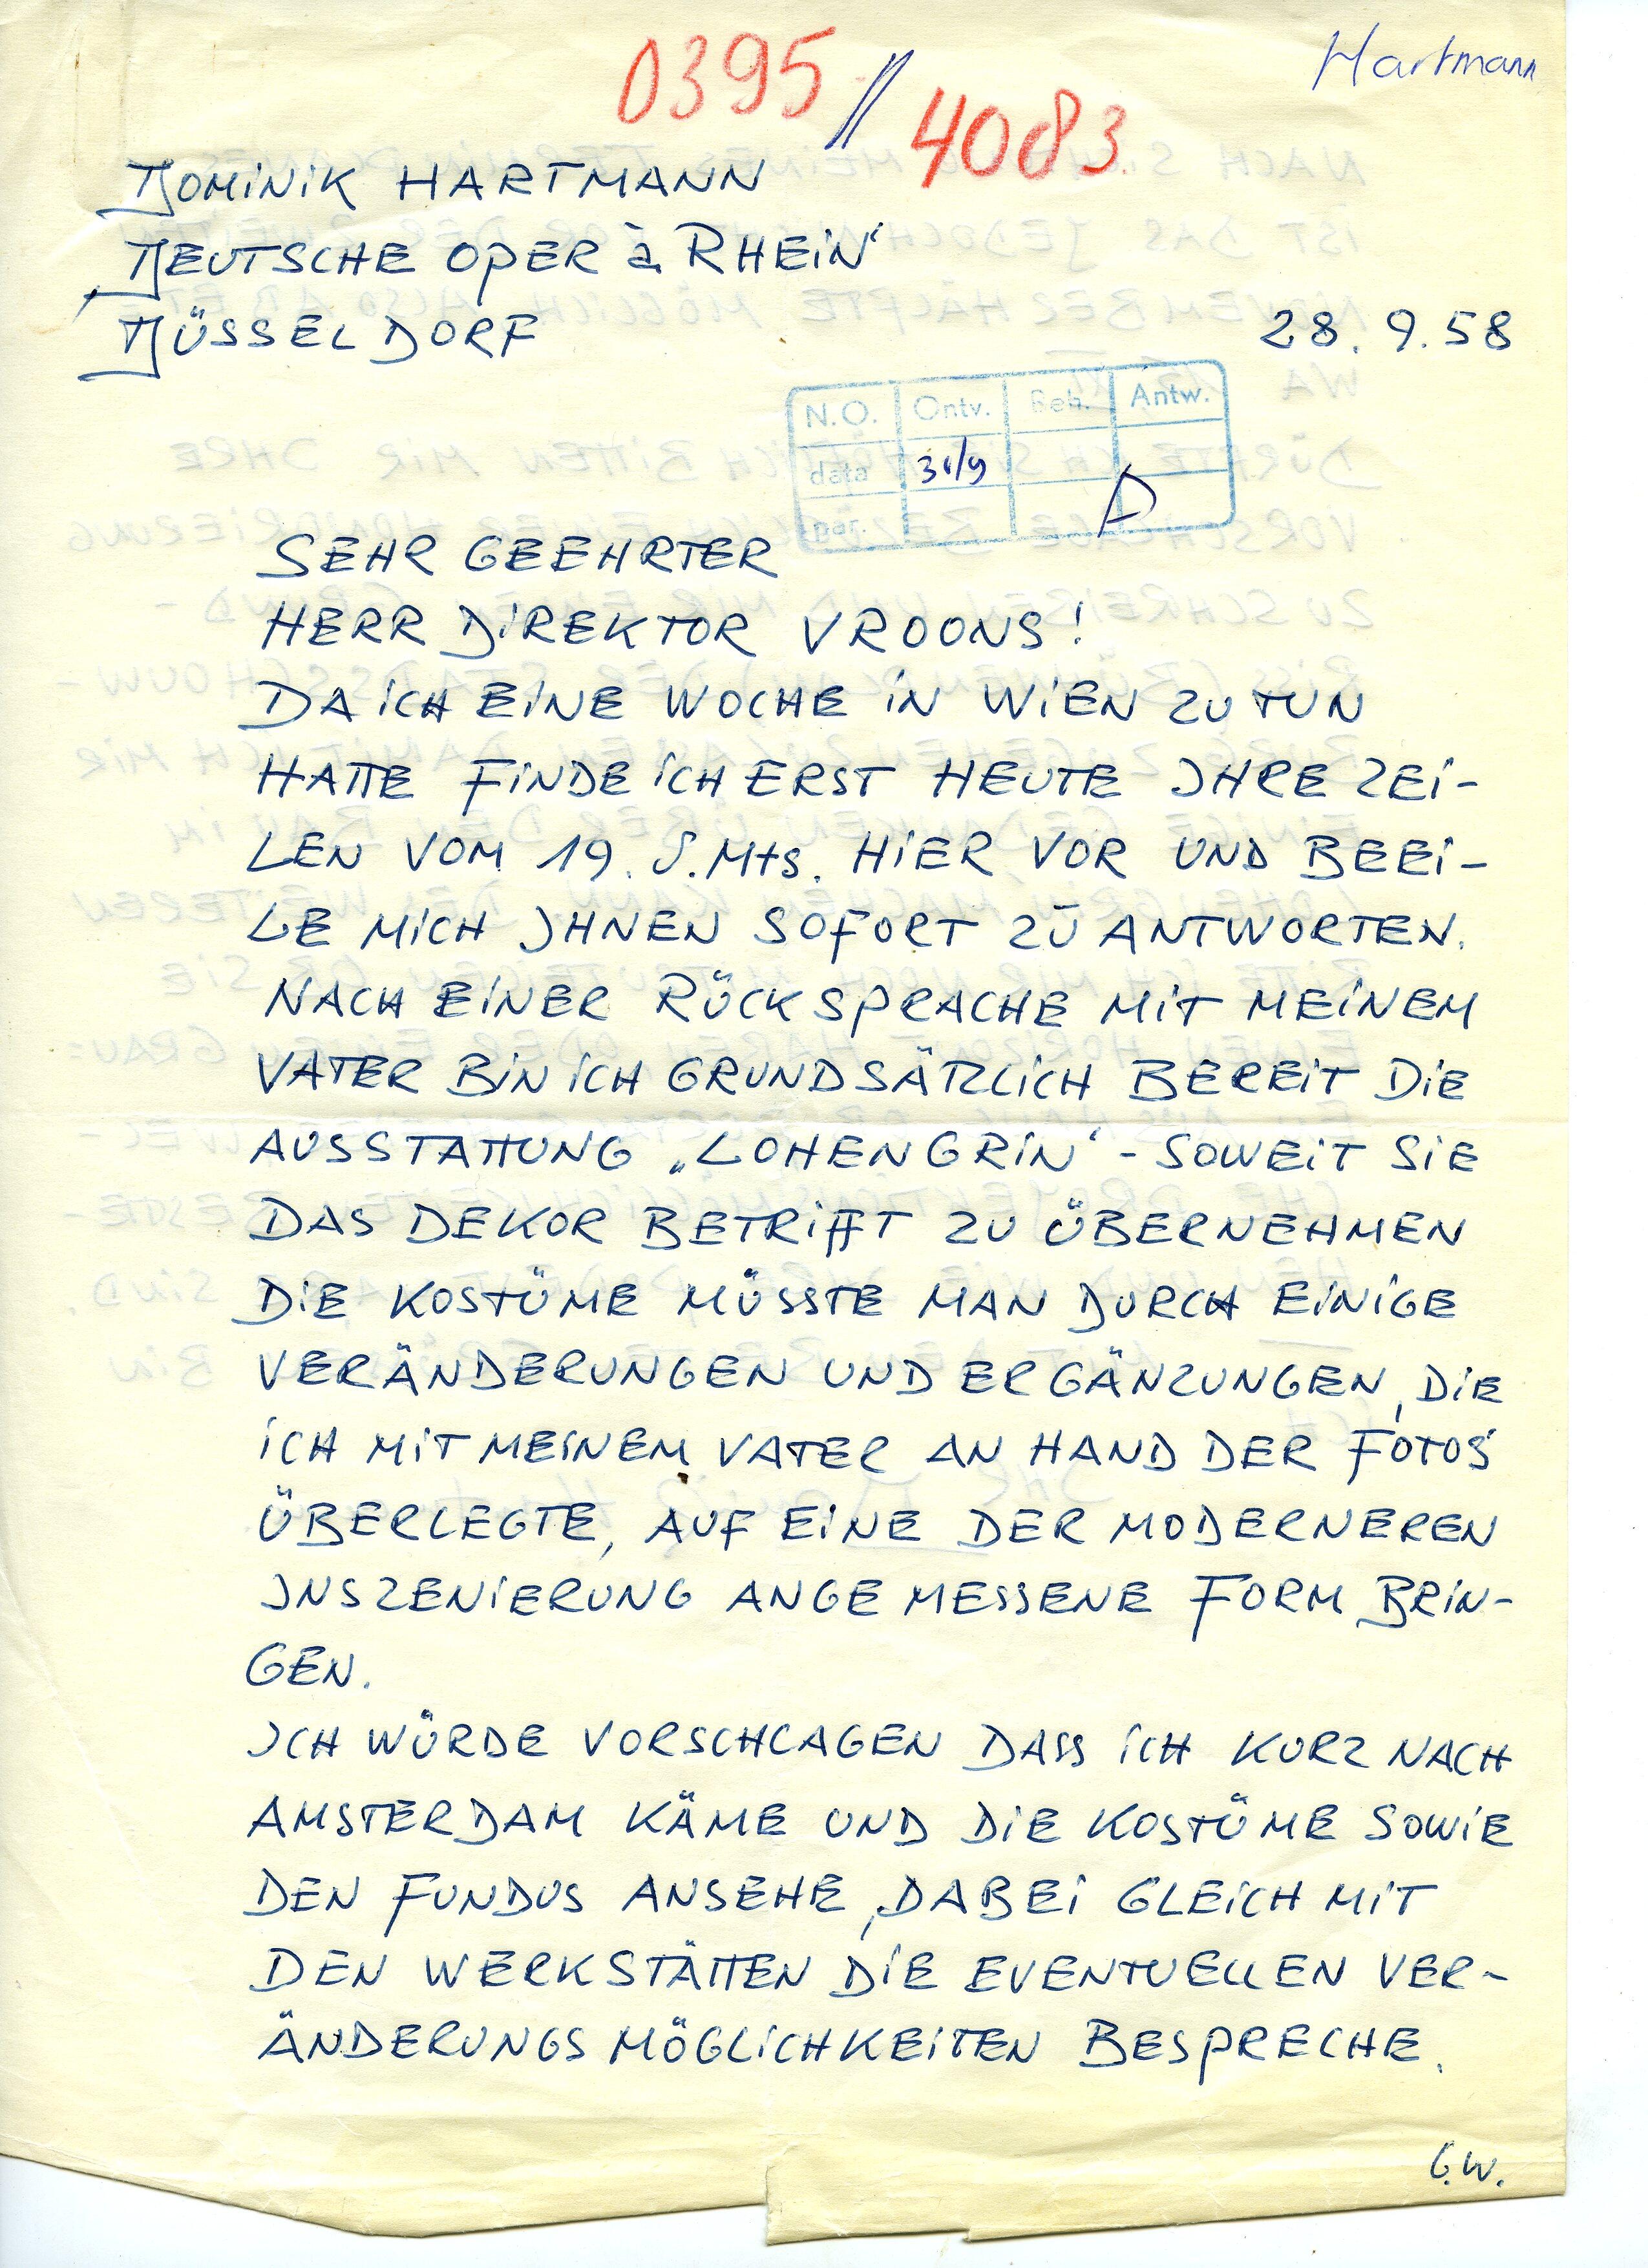 Hartmann
0395 // 4083
DOMINIK HARTMANN
DEUTSCHE OPER à RHEIN'
DÜSSELDORF
28. 9. 58
N.O. Ontv. Beh. Antw.
data
par.
SEHR GEEHRTER
HERR DIREKTOR VROONS!
DA ICH EINE WOCHE IN WIEN ZU TUN
HATTE FINDE ICH ERST HEUTE IHRE ZEI-
LEN VOM 19. d. Mts. HIER VOR UND BEEI-
LE MICH IHNEN SOFORT ZU ANTWORTEN.
NACH EINER RÜCKSPRACHE MIT MEINEM
VATER BIN ICH GRUNDSÄTZLICH BEREIT DIE
AUSSTATTUNG „LOHENGRIN‘ - SOWEIT SIE
DAS DEKOR BETRIFFT ZU ÜBERNEHMEN
DIE KOSTÜME MÜSSTE MAN DURCH EINIGE
VERÄNDERUNGEN UND ERGÄNZUNGEN, DIE
ICH MIT MEINEM VATER AN HAND DER FOTOS
ÜBERLEGTE, AUF EINE DER MODERNEREN
INSZENIERUNG ANGEMESSENE FORM BRIN-
GEN.
ICH WÜRDE VORSCHLAGEN DASS ICH KURZ NACH
AMSTERDAM KÄME UND DIE KOSTÜME SOWIE
DEN FUNDUS ANSEHE, DABEI GLEICH MIT
DEN WERKSTÄTTEN DIE EVENTUELLEN VER-
ÄNDERUNGSMÖGLICHKEITEN BESPRECHE.